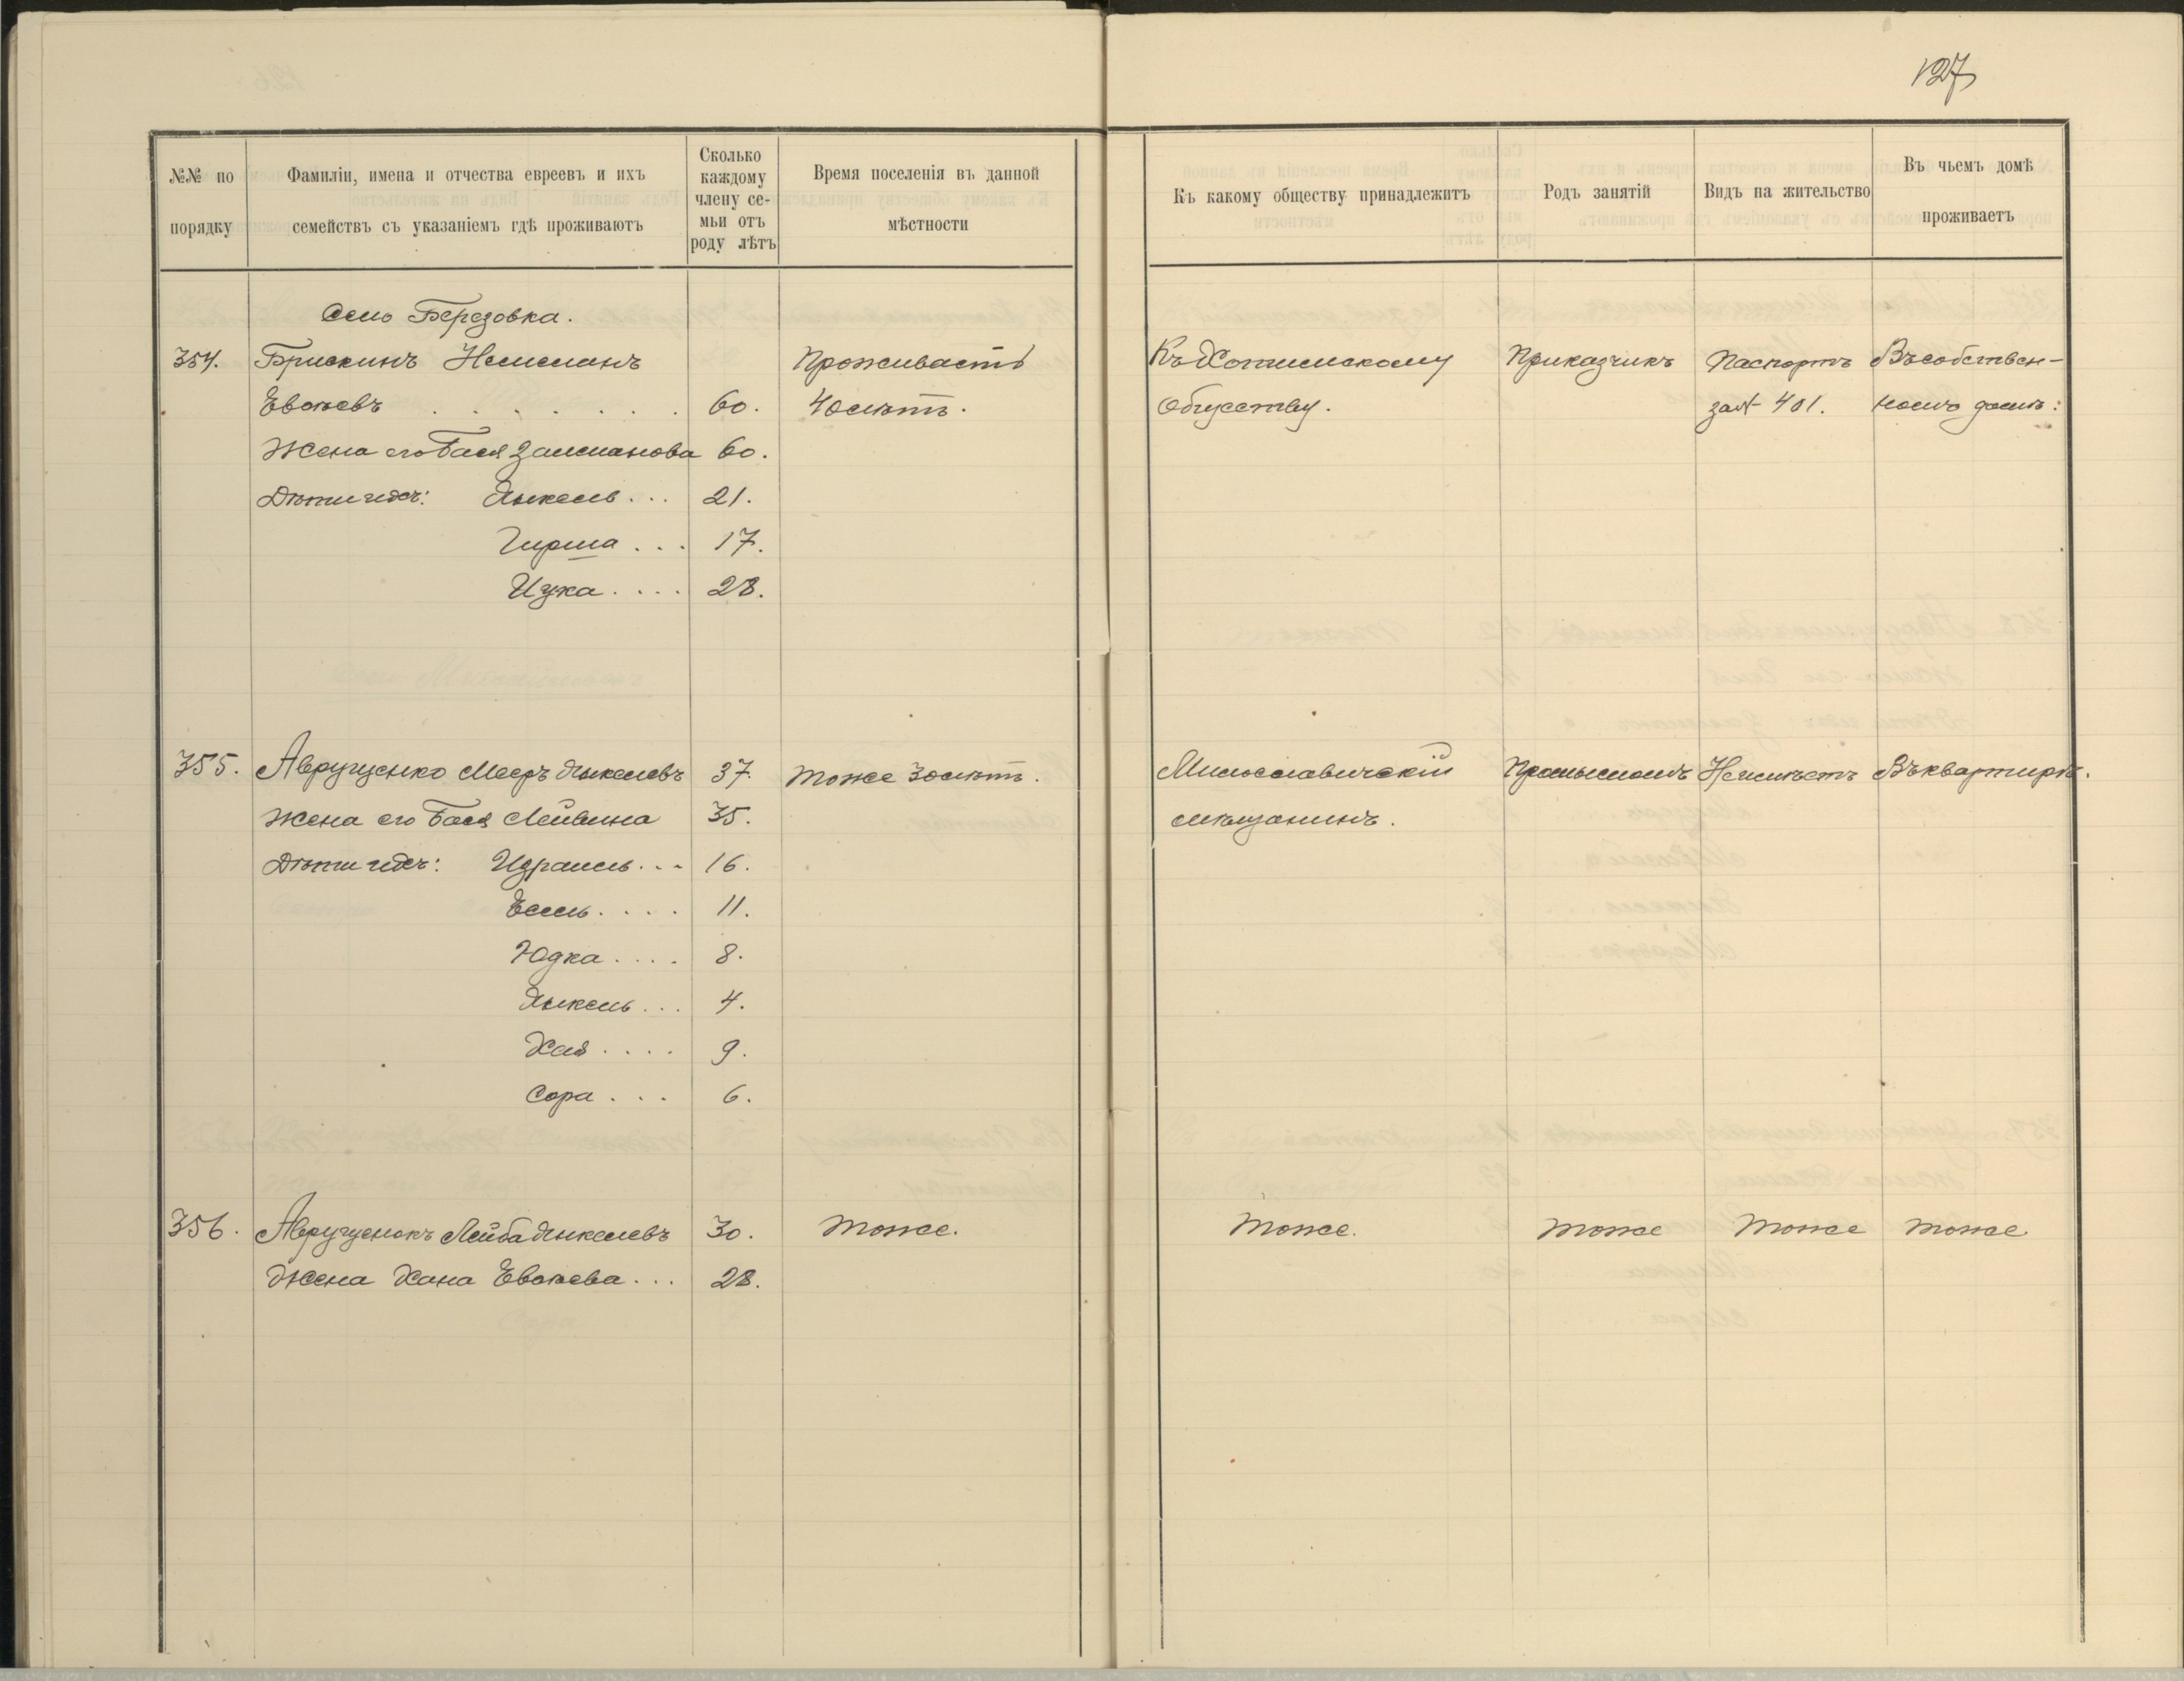 127
№№ по порядку
Фамиліи, имена и отчества евреевъ и ихъ
семействъ съ указаніемъ гдѣ проживаютъ
Сколько
каждому
члену се-
мьи отъ
роду лѣтъ
Время поселенія въ данной
мѣстности
Къ какому обществу принадлежитъ
Родъ занятій
Видъ на жительство
Въ чьемъ домѣ
проживаетъ
Село Березовка.
354. Брискинъ Нешманъ Проживаетъ Къ Хотимскому Приказчикъ Паспортъ Въ собствен-
Евелевъ 60. 40 лѣтъ. Обществу. за № 401. номъ домѣ:
Жена его Бася Залманова 60.
Дѣти ихъ: Янкель... 21.
Гирша... 17.
Ицка.... 28.
355. Авруценко Мееръ Янкелевъ 37. тоже 30 лѣтъ. Милославичскій Промысломъ Неимѣетъ Въ квартирѣ.
Жена его Бася Лейвина 35. мѣщанинъ.
Дѣти ихъ: Израиль... 16.
Есель.... 11.
Юдка.... 8.
Янкель... 4.
Хая.... 9.
Сора... 6.
356. Авруценокъ Лейба Янкелевъ 30. тоже. тоже. тоже тоже тоже.
Жена Хана Евелева... 28.